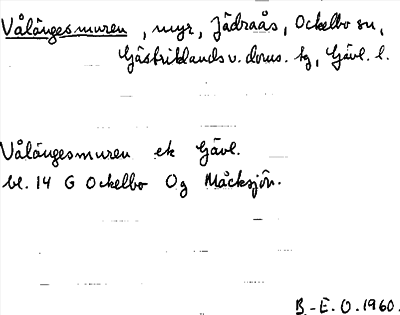 Vålängesmuren, myr, Jädraås, Ockelbo sn,
Gästriklands v. doms. tg, Gävl. l.
Vålängesmuren ek Gävl.
bl. 14 G Ockelbo Og Måcksjön.
B.-E. O. 1960.